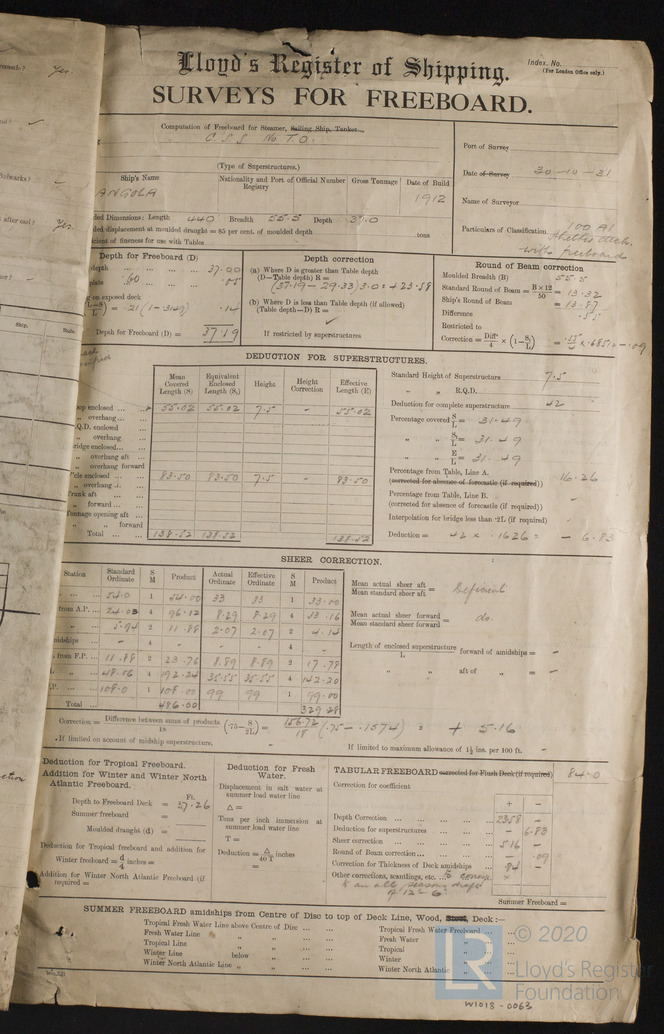 Lloyd's Register of Shipping.
Index. No.
(For London Office only.)
SURVEYS FOR FREEBOARD.
Computation of Freeboard for Steamer, Sailing Ship, Tanker
(Type of Superstructures.)
Port of Survey
Date of Survey 30-10-31
Name of Surveyor
Particulars of Classification 100 A1
with freeboard
Ship's Name
Nationality and Port of Registry
Official Number
Gross Tonnage
Date of Build
ANGOLA
1912
Dimensions: Length 440 Breadth 55.5 Depth 37.0
displacement at moulded draught = 85 per cent. of moulded depth tons
of fineness for use with Tables
Depth for Freeboard (D)
depth ... 37.00
plate .60 .05
on exposed deck
.14
Depth for Freeboard (D) = 37.19
Depth correction
(a) Where D is greater than Table depth
(D—Table depth) R =
(37.19 - 29.33) 3.0 = +23.58
(b) Where D is less than Table depth (if allowed)
(Table depth—D) R =
If restricted by superstructures
Round of Beam correction
Moulded Breadth (B) 55.5
Standard Round of Beam = B × 12 / 50 = 13.32
Ship's Round of Beam = 13.87
Difference .55
Restricted to
Correction = Diff / 4 × (1 - S₁/L) = .55/4 × .6851 = -.09
DEDUCTION FOR SUPERSTRUCTURES.
Mean Covered Length (S)
Equivalent Enclosed Length (S₁)
Height
Height Correction
Effective Length (E)
oop enclosed ... 55.02 55.02 7.5 - 55.02
„ overhang ...
.Q.D. enclosed
„ overhang
ridge enclosed...
„ overhang aft
„ overhang forward
'cle enclosed ... 83.50 83.50 7.5 - 83.50
„ overhang
runk aft
„ forward ...
onnage opening aft
„ „ forward
Total ... 138.52 138.52 138.52
Standard Height of Superstructure 7.5
„ „ R.Q.D.
Deduction for complete superstructure 42
Percentage covered S/L = 31.49
„ „ S₁/L = 31.49
„ „ E/L = 31.49
Percentage from Table, Line A. 16.26
(corrected for absence of forecastle (if required))
Percentage from Table, Line B. -
(corrected for absence of forecastle (if required))
Interpolation for bridge less than ·2L (if required) -
Deduction = 42 × .1626 = - 6.83
SHEER CORRECTION.
Station
Standard Ordinate
S M
Product
Actual Ordinate
Effective Ordinate
S M
Product
54.0 1 54.00 33 33 1 33.00
from A.P. ... 24.03 4 96.12 8.29 8.29 4 33.16
„ 5.94 2 11.88 2.07 2.07 2 4.14
midships - 4 - - - 4 -
from F.P. ... 11.88 2 23.76 8.89 8.89 2 17.78
„ 48.06 4 192.24 35.55 35.55 4 142.20
.P. 108.0 1 108.00 99 99 1 99.00
Total ... 486.00 329.28
Mean actual sheer aft / Mean standard sheer aft = Deficient
Mean actual sheer forward / Mean standard sheer forward = do.
Length of enclosed superstructure / L forward of amidships = -
„ „ aft of „ = -
Correction = Difference between sums of products / 18 (·75 - S/2L) = 156.72/18 (.75 - .1574) = + 5.16
If limited on account of midship superstructure. -
If limited to maximum allowance of 1½ ins. per 100 ft. -
Deduction for Tropical Freeboard.
Addition for Winter and Winter North Atlantic Freeboard.
Ft.
Depth to Freeboard Deck = 37.26
Summer freeboard =
Moulded draught (d) =
Deduction for Tropical freeboard and addition for
Winter freeboard = d/4 inches =
Addition for Winter North Atlantic Freeboard (if required =
Deduction for Fresh Water.
Displacement in salt water at summer load water line
Δ =
Tons per inch immersion at summer load water line
T =
Deduction = Δ / 40 T inches
=
TABULAR FREEBOARD corrected for Flush Deck (if required) 84.0
Correction for coefficient
+ -
Depth Correction ... 23.58 -
Deduction for superstructures ... - 6.83
Sheer correction ... 5.16 -
Round of Beam correction ... - .09
Correction for Thickness of Deck amidships ... .84 -
Other corrections, scantlings, etc. ... to
to an all seasons draft
Summer Freeboard =
SUMMER FREEBOARD amidships from Centre of Disc to top of Deck Line, Wood, Steel, Deck :—
Tropical Fresh Water Line above Centre of Disc ...
Fresh Water Line „ „
Tropical Line „ „
Winter Line below „
Winter North Atlantic Line „ „
Tropical Fresh Water Freeboard ...
Fresh Water „
Tropical „
Winter „
Winter North Atlantic „
LR
© 2020
Lloyd's Register
Foundation
W1018-0063